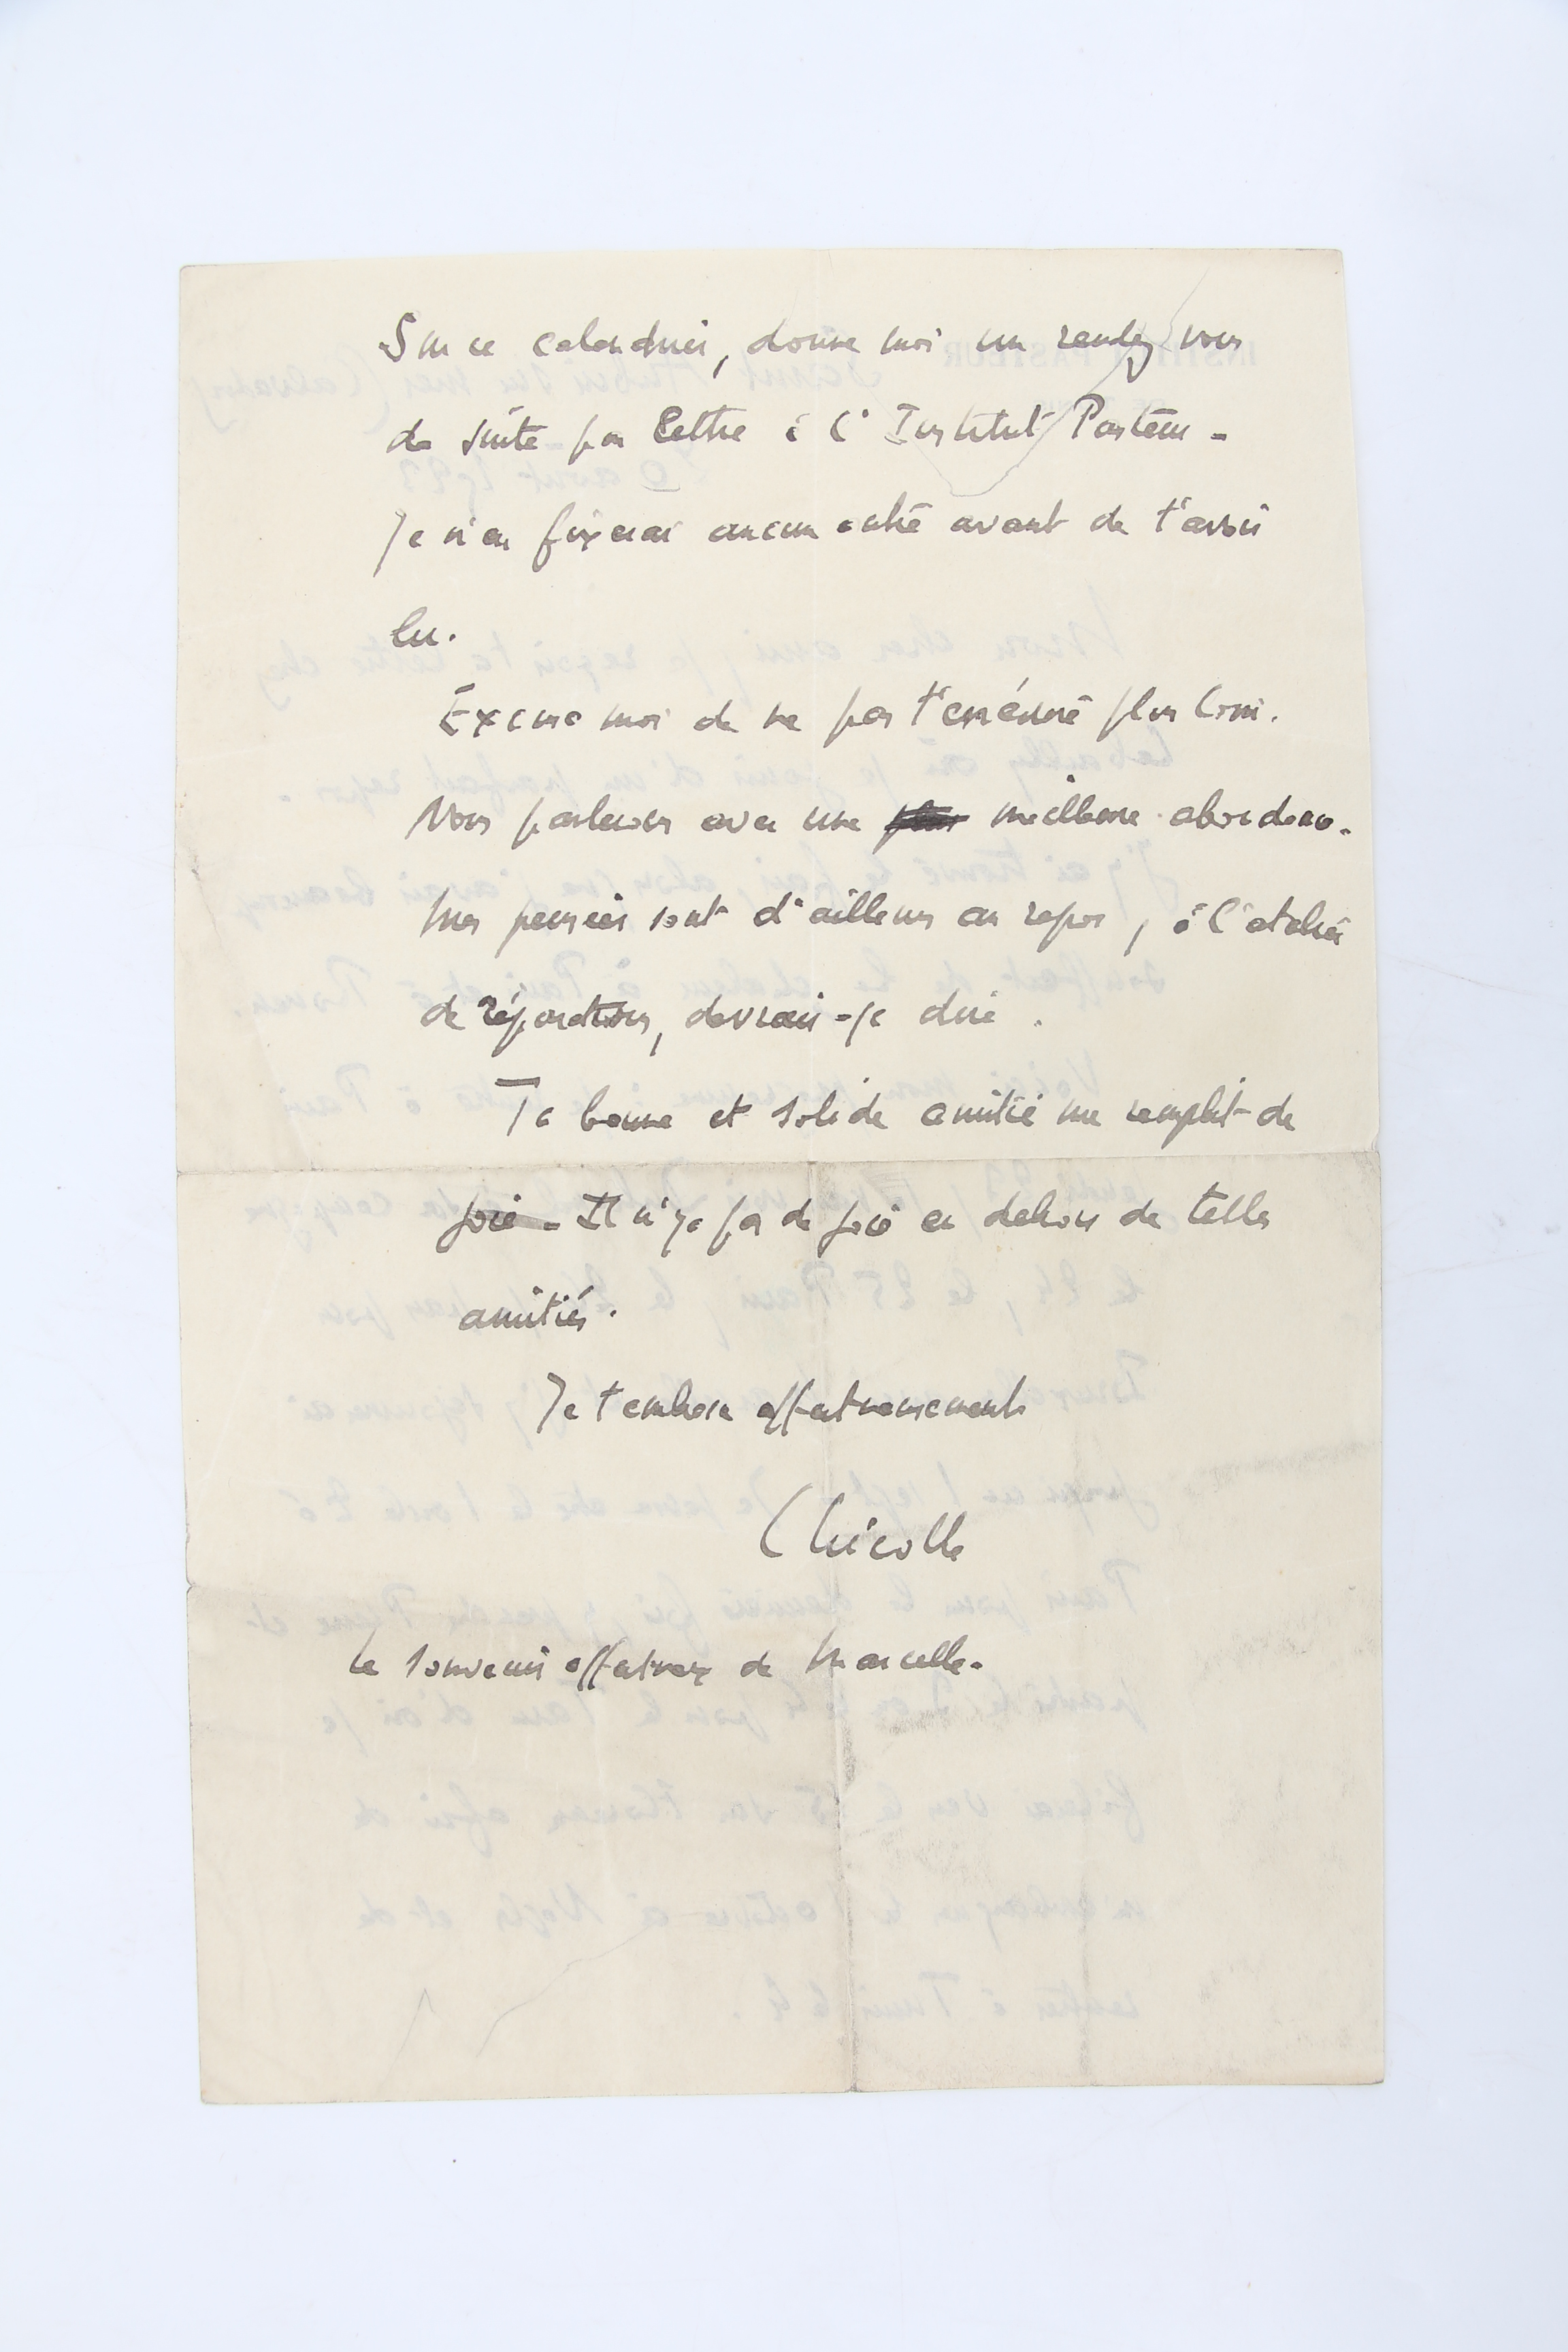 Sur ce calendrier, donne moi un rendez vous
de suite par lettre à l'Institut Pasteur -
Je n'en fixerai aucun autre avant de t'avoir
lu.
Excuse moi de ne pas t'en écrire plus long.
Nous parlerons avec une meilleure abondance.
Mes pensées sont d'ailleurs au repos, à l'atelier
de réparations, devrais-je dire.
Ta bonne et solide amitié me remplit de
joie - Il n'y a pas de joie en dehors de telles
amitiés.
Je t'embrasse affectueusement
CNicolle
Le souvenir affectueux de Marcelle -